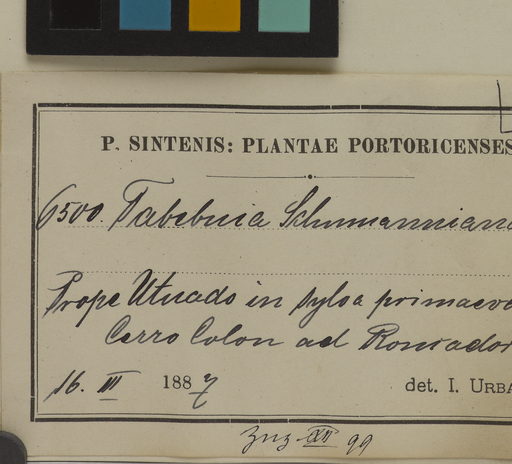 P. SINTENIS: PLANTAE PORTORICENSES
6500. Tabebuia Schumanniana
Prope Utuado in sylva primaeva
Cerro Colon ad Roncador
16. III 1887 det. I. URBA
XII 99